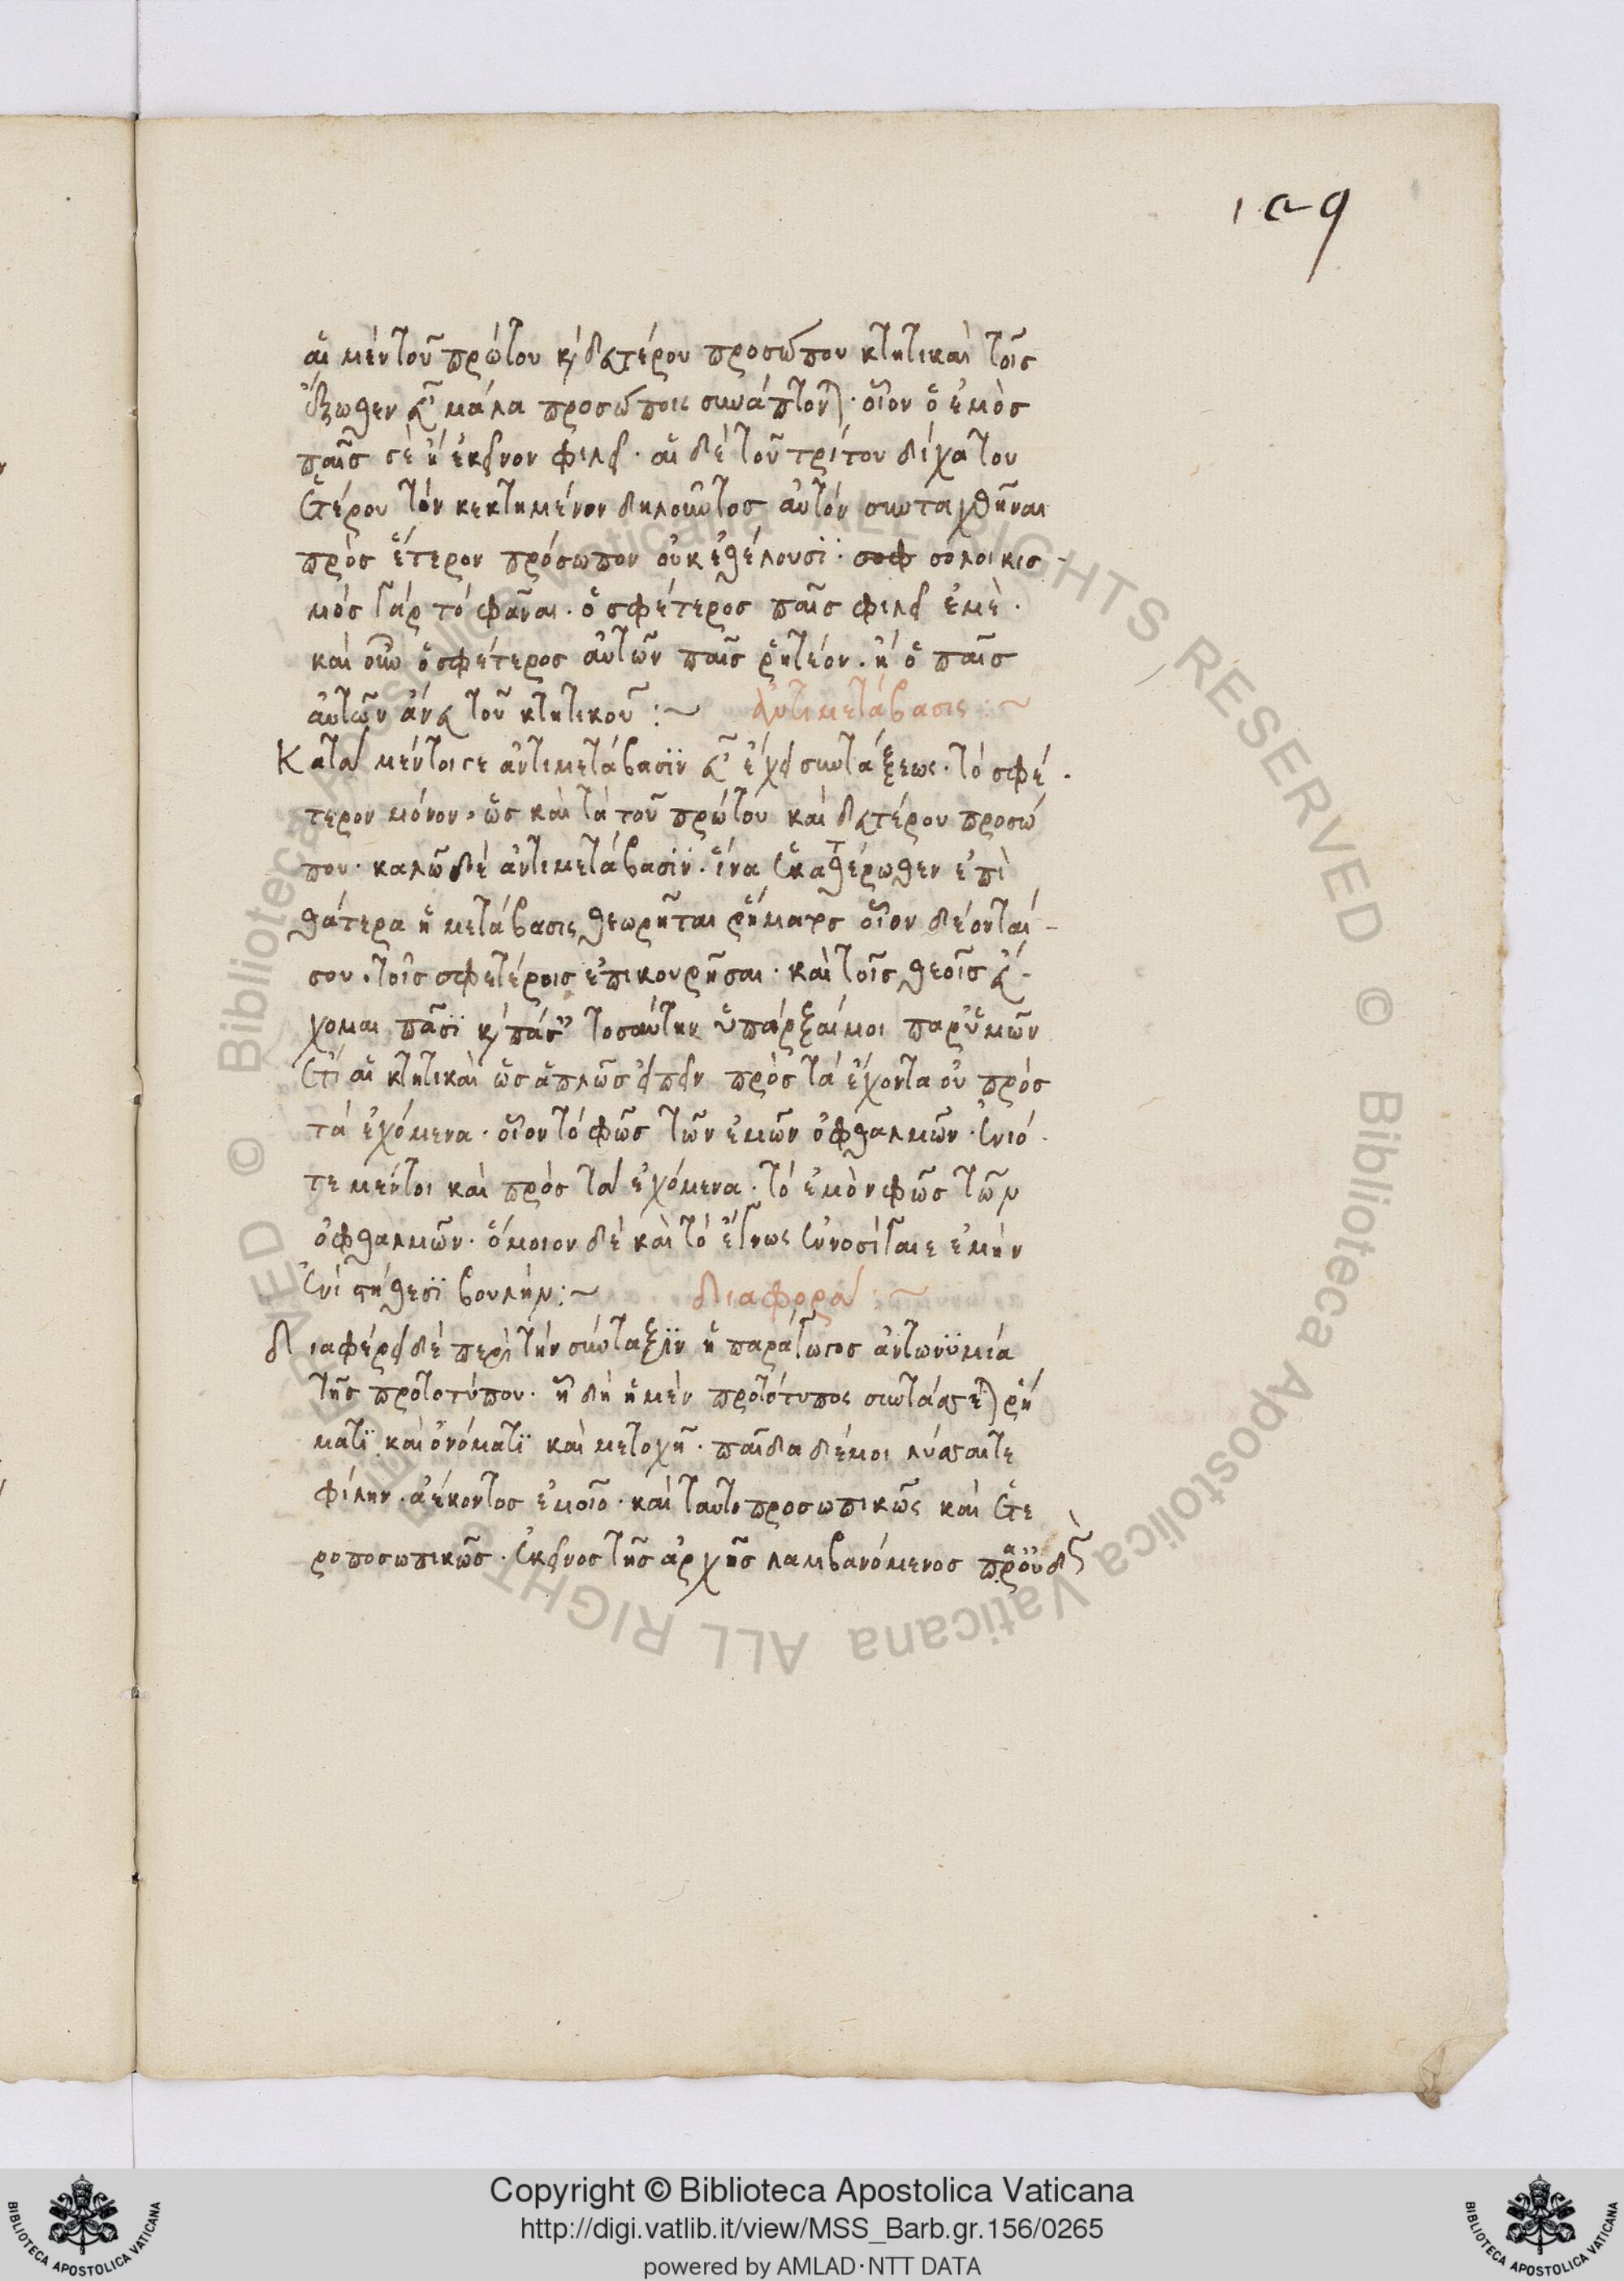 129
αἱ μὲν τοῦ πρώτου κ δευτέρου προσώπου κτητικαὶ τοῖς
ἔξωθεν εὖ μάλα προσώποις συνάπτονται · οἷον ὁ ἐμὸς
παῖς σὲ ἢ ἐκεῖνον φιλεῖ · αἱ δὲ τοῦ τρίτου δίχα του
ἑτέρου τὸν κεκτημένον δηλοῦντος αὐτὸν συνταχθῆναι
πρὸς ἕτερον πρόσωπον οὐκ ἐθέλουσϊ · σοφ σολοικισ-
μός γάρ τό φᾶναι · ὁ σφέτερος παῖς φιλεῖ ἐμὲ ·
καὶ οὖν ὁ σφέτερος αὐτῶν παῖς ῥητέον · ἢ ὁ παῖς
αὐτῶν ἄνευ τοῦ κτητικοῦ :~ Ἀντιμετάβασις :~
Κατὰ μέντοιγε ἀντιμετάβασϊν εὖ ἔχει συντάξεως · τὸ σφέ-
τερον μόνον, ὡς καὶ τὰ τοῦ πρώτου καὶ δευτέρου προσώ
που · καλῶ δὲ ἀντιμετάβασϊν · ἵνα ἑκατθέρωθεν ἐπὶ
θάτερα ἡ μετάβασις θεωρῆται ῥήματος οἷον δέονταί -
σου · τοῖς σφετέροις ἐπικουρῆσαι · καὶ τοῖς θεοῖς εὔ-
χομαι πᾶσϊ κ πάσαις τοσαύτην ὑπάρξαί μοι παρ' ὑμῶν
Ἔτι αἱ κτητικαὶ ὡς ἁπλῶς εἰπεῖν πρὸς τὰ ἔχοντα οὐ πρὸς
τὰ ἐχόμενα · οἷον τὸ φῶς τῶν ἐμῶν ὀφθαλμῶν · ἐνιό-
τε μέντοι καὶ πρὸς τὰ ἐχόμενα · τὸ ἐμὸν φῶς τῶν
ὀφθαλμῶν · ὅμοιον δὲ καὶ τὸ ἔγνως ἐννοσίγαιε ἐμὴν
ἐνὶ στήθεσϊ βουλήν :~ Διαφορὰ :~
Διαφέρει δὲ περὶ τὴν σύνταξϊν ἡ παράγωγος ἀντωνϋμία
τῆς πρωτοτύπου · ᾗ δὴ ἡ μὲν πρωτότυπος συντάσσεται ῥή
ματϊ καὶ ὀνόματϊ καὶ μετοχῇ · παῖδα δέ μοι λύσαιτε
φίλην · ἀέκοντος ἐμοῖο · καὶ ταυτοπροσωπικῶς καὶ ἑτε
ροποσωπικῶς · ἐκεῖνος τῆς ἀρχῆς λαμβανόμενος παρ' οὐδενὸς
Copyright © Biblioteca Apostolica Vaticana
http://digi.vatlib.it/view/MSS_Barb.gr.156/0265
powered by AMLAD·NTT DATA